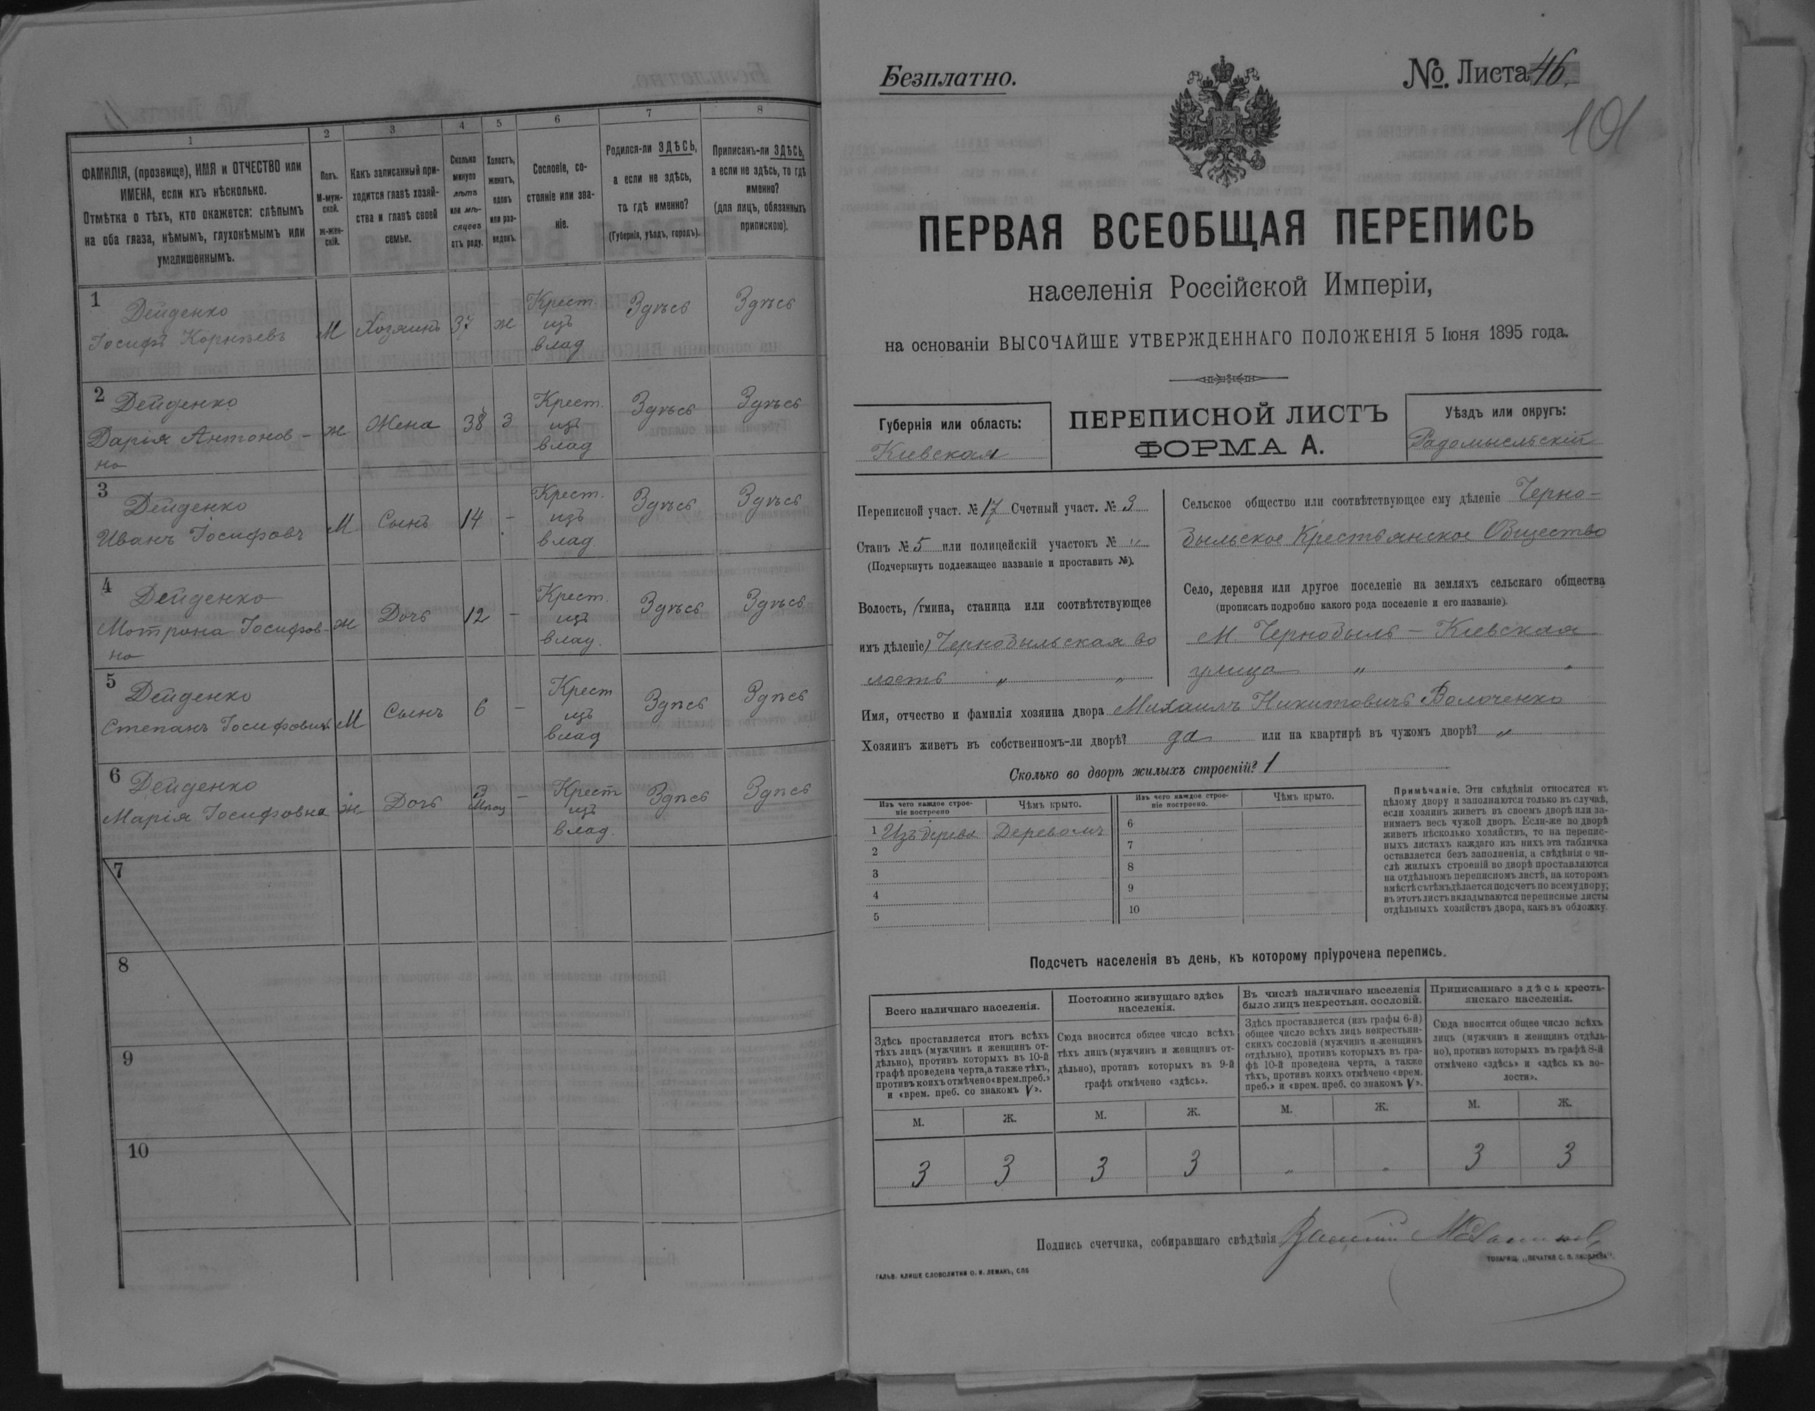 1
2
3
4
5
6
7
8
ФАМИЛІЯ, (прозвище), ИМЯ и ОТЧЕСТВО или
ИМЕНА, если ихъ нѣсколько.
Отмѣтка о тѣхъ, кто окажется: слѣпымъ
на оба глаза, нѣмымъ, глухонѣмымъ или
умалишеннымъ.
Полъ.
М-муж-
ской.
ж-жен-
скій.
Какъ записанный при-
ходится главѣ хозяй-
ства и главѣ своей
семьи.
Сколько
минуло
лѣтъ
или мѣ-
сяцевъ
отъ роду.
Холостъ,
женатъ,
вдовъ
или раз-
веденъ.
Сословіе, со-
стояніе или зва-
ніе.
Родился-ли ЗДѢСЬ,
а если не здѣсь,
то гдѣ именно?
(Губернія, уѣздъ, городъ).
Приписанъ-ли ЗДѢСЬ,
а если не здѣсь, то гдѣ
именно?
(для лицъ, обязанныхъ
припискою).
1
Дейденко
Іосифъ Корнѣевъ
М
Хозяинъ
37
ж
Крест
изъ
влад
Здѣсь
Здѣсь
2
Дейденко
Дарія Антонов-
на
ж
Жена
38
з
Крест.
изъ
влад
Здѣсь
Здѣсь
3
Дейденко
Иванъ Іосифовъ
М
Сынъ
14
-
Крест.
изъ
влад.
Здѣсь
Здѣсь
4
Дейденко
Мотрона Іосифов-
на
ж
Дочь
12
-
Крест.
изъ
влад.
Здѣсь
Здѣсь
5
Дейденко
Степанъ Іосифовичъ
М
Сынъ
6
-
Крест
изъ
влад
Здѣсь
Здѣсь
6
Дейденко
Марія Іосифовна
ж
Дочь
3
Мѣсяц
-
Крест
изъ
влад.
Здѣсь
Здѣсь
7
8
9
10
Безплатно.
№ Листа 46.
101
ПЕРВАЯ ВСЕОБЩАЯ ПЕРЕПИСЬ
населенія Россійской Имперіи,
на основаніи ВЫСОЧАЙШЕ УТВЕРЖДЕННАГО ПОЛОЖЕНІЯ 5 Іюня 1895 года.
Губернія или область:
Кіевская
ПЕРЕПИСНОЙ ЛИСТЪ
ФОРМА А.
Уѣздъ или округъ:
Радомысльскій
Переписной участ. № 17 Счетный участ. № 3
Станъ № 5 или полицейскій участокъ № "
(Подчеркнуть подлежащее названіе и проставить №).
Волость, (гмина, станица или соотвѣтствующее
имъ дѣленіе) Чернобыльская во
лость " "
Сельское общество или соотвѣтствующее ему дѣленіе Черно-
быльское Крестьянское Общество
Село, деревня или другое поселеніе на земляхъ сельскаго общества
(прописать подробно какого рода поселеніе и его названіе)
М. Чернобыль - Кіевская
улица " "
Имя, отчество и фамилія хозяина двора Михаилъ Никитовичъ Волоченко
Хозяинъ живетъ въ собственномъ-ли дворѣ? да или на квартирѣ въ чужомъ дворѣ? "
Сколько во дворѣ жилыхъ строеній? 1
Изъ чего каждое строе-
ніе построено
Чѣмъ крыто.
Изъ чего каждое строе-
ніе построено.
Чѣмъ крыто.
1 Изъ дерева Деревомъ
2
3
4
5
6
7
8
9
10
Примѣчаніе. Эти свѣдѣнія относятся къ
цѣлому двору и заполняются только въ случаѣ,
если хозяинъ живетъ въ своемъ дворѣ или за-
нимаетъ весь чужой дворъ. Если-же во дворѣ
живетъ нѣсколько хозяйствъ, то на перепис-
ныхъ листахъ каждаго изъ нихъ эта табличка
оставляется безъ заполненія, а свѣдѣнія о чи-
слѣ жилыхъ строеній во дворѣ проставляются
на отдѣльномъ переписномъ листѣ, на которомъ
вмѣстѣ съ тѣмъ дѣлается подсчетъ по всему двору;
въ этотъ листъ вкладываются переписные листы
отдѣльныхъ хозяйствъ двора, какъ въ обложку.
Подсчетъ населенія въ день, къ которому пріурочена перепись.
Всего наличнаго населенія.
Здѣсь проставляется итогъ всѣхъ
тѣхъ лицъ (мужчинъ и женщинъ от-
дѣльно), противъ которыхъ въ 10-й
графѣ проведена черта, а также тѣхъ,
противъ коихъ отмѣчено «врем. преб.»
и «врем. преб. со знакомъ V».
М.
Ж.
3
3
Постоянно живущаго здѣсь
населенія.
Сюда вносится общее число всѣхъ
тѣхъ лицъ (мужчинъ и женщинъ от-
дѣльно), противъ которыхъ въ 9-й
графѣ отмѣчено «здѣсь».
М.
Ж.
3
3
Въ числѣ наличнаго населенія
было лицъ некрестьян. сословій.
Здѣсь проставляется (изъ графы 6-й)
общее число всѣхъ лицъ некрестьян-
скихъ сословій (мужчинъ и женщинъ
отдѣльно), противъ которыхъ въ гра-
фѣ 10-й проведена черта, а также
тѣхъ, противъ коихъ отмѣчено «врем.
преб.» и «врем. преб. со знакомъ V».
М.
Ж.
-
-
Приписаннаго здѣсь кресть-
янскаго населенія.
Сюда вносится общее число всѣхъ
лицъ (мужчинъ и женщинъ отдѣль-
но), противъ которыхъ въ графѣ 8-й
отмѣчено «здѣсь» и «здѣсь къ во-
лости».
М.
Ж.
3
3
Подпись счетчика, собиравшаго свѣдѣнія
ГАЛЬВ. КЛИШЕ СЛОВОЛИТНИ О. И. ЛЕМАНЪ, СПБ
ТОВАРИЩ. „ПЕЧАТНЯ С. П. ЯКОВЛЕВА“.